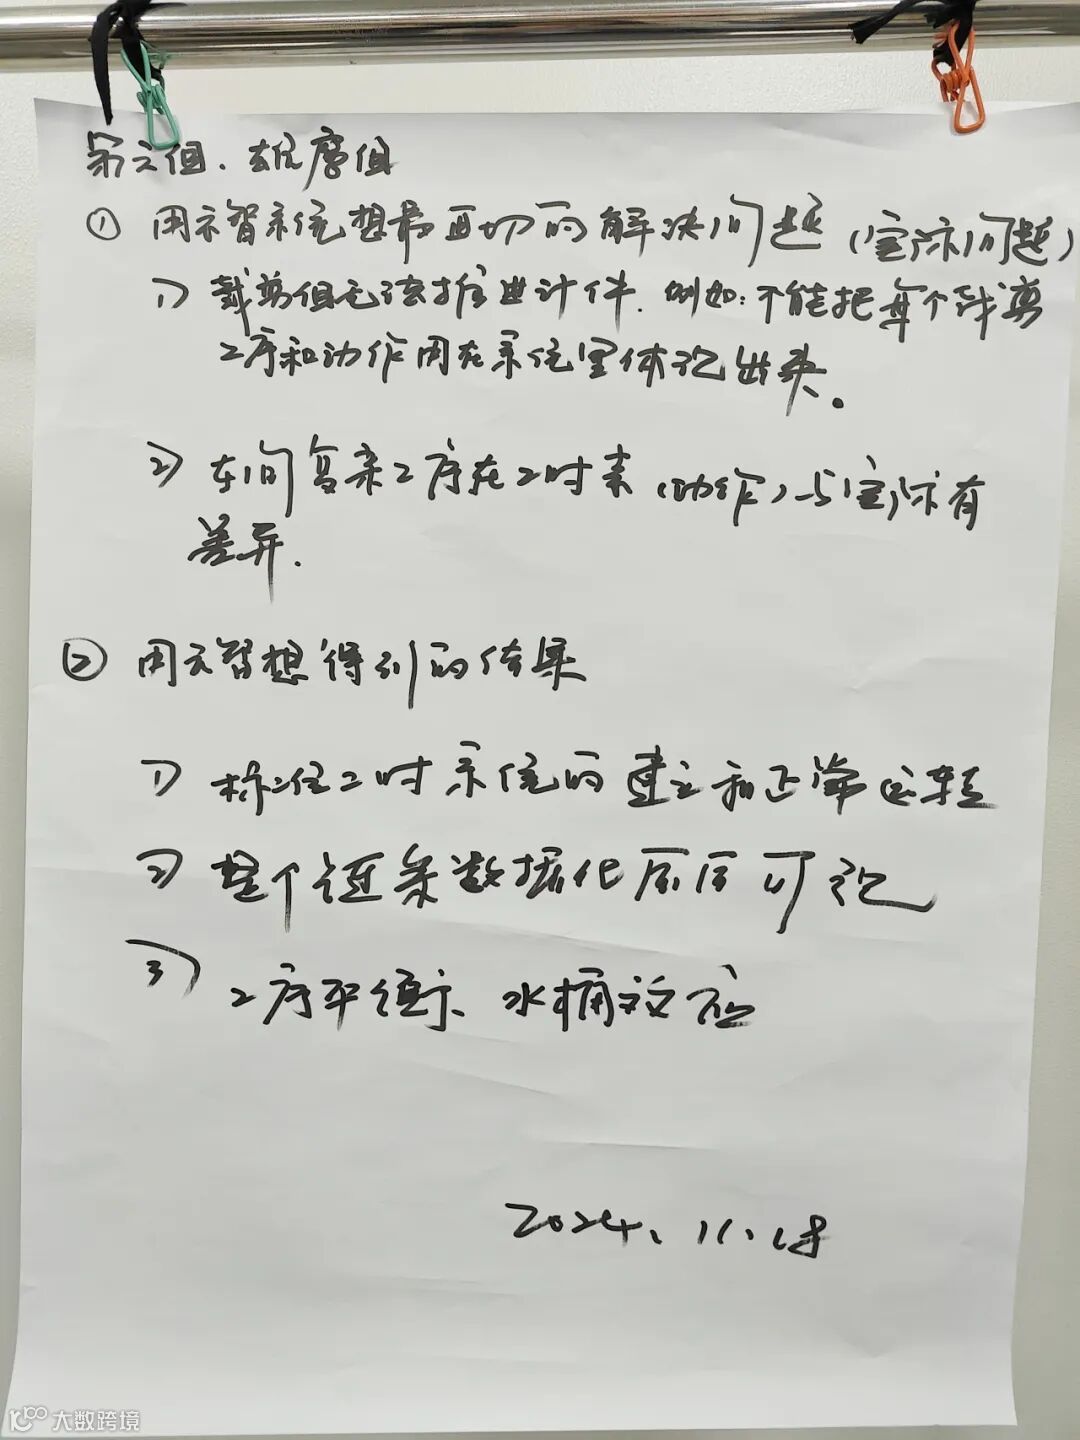 第六组.雄鹰组
① 用云智系统想最迫切的解决问题(实际问题)
1) 裁剪组无法推进计件.例如:不能把每个裁剪
工序和动作用在系统里体现出来。
2) 车间复杂工序在工时表(动作)与实际有
差异.
② 用云智想得到的结果
1) 标准工时系统的建立和正常运转
2) 整个链条数据化层层可视
3) 工序平衡、水桶效应
2024.11.18
大数跨境